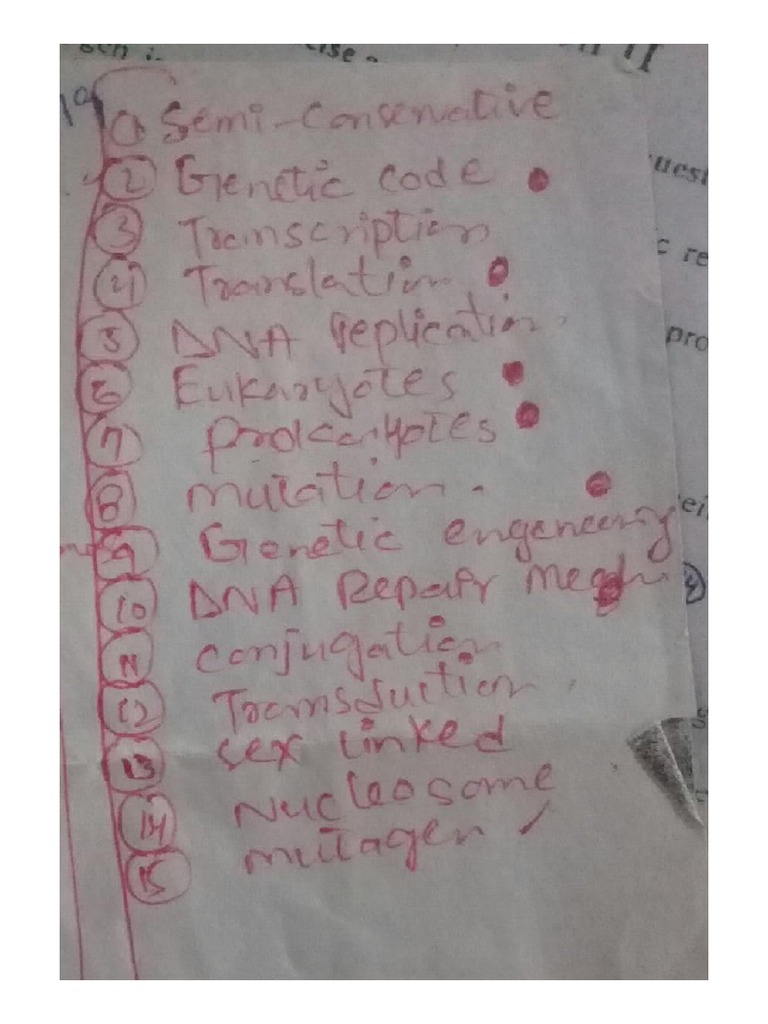 ① Semi-Conservative
② Genetic code
③ Transcription
④ Translation
⑤ DNA Replication
⑥ Eukaryotes
⑦ prokaryotes
⑧ mutation.
⑨ Genetic engeneering
⑩ DNA Repair mech
11 conjugation
12 Transduction
13 sex linked
14 Nucleosome
15 mutagen